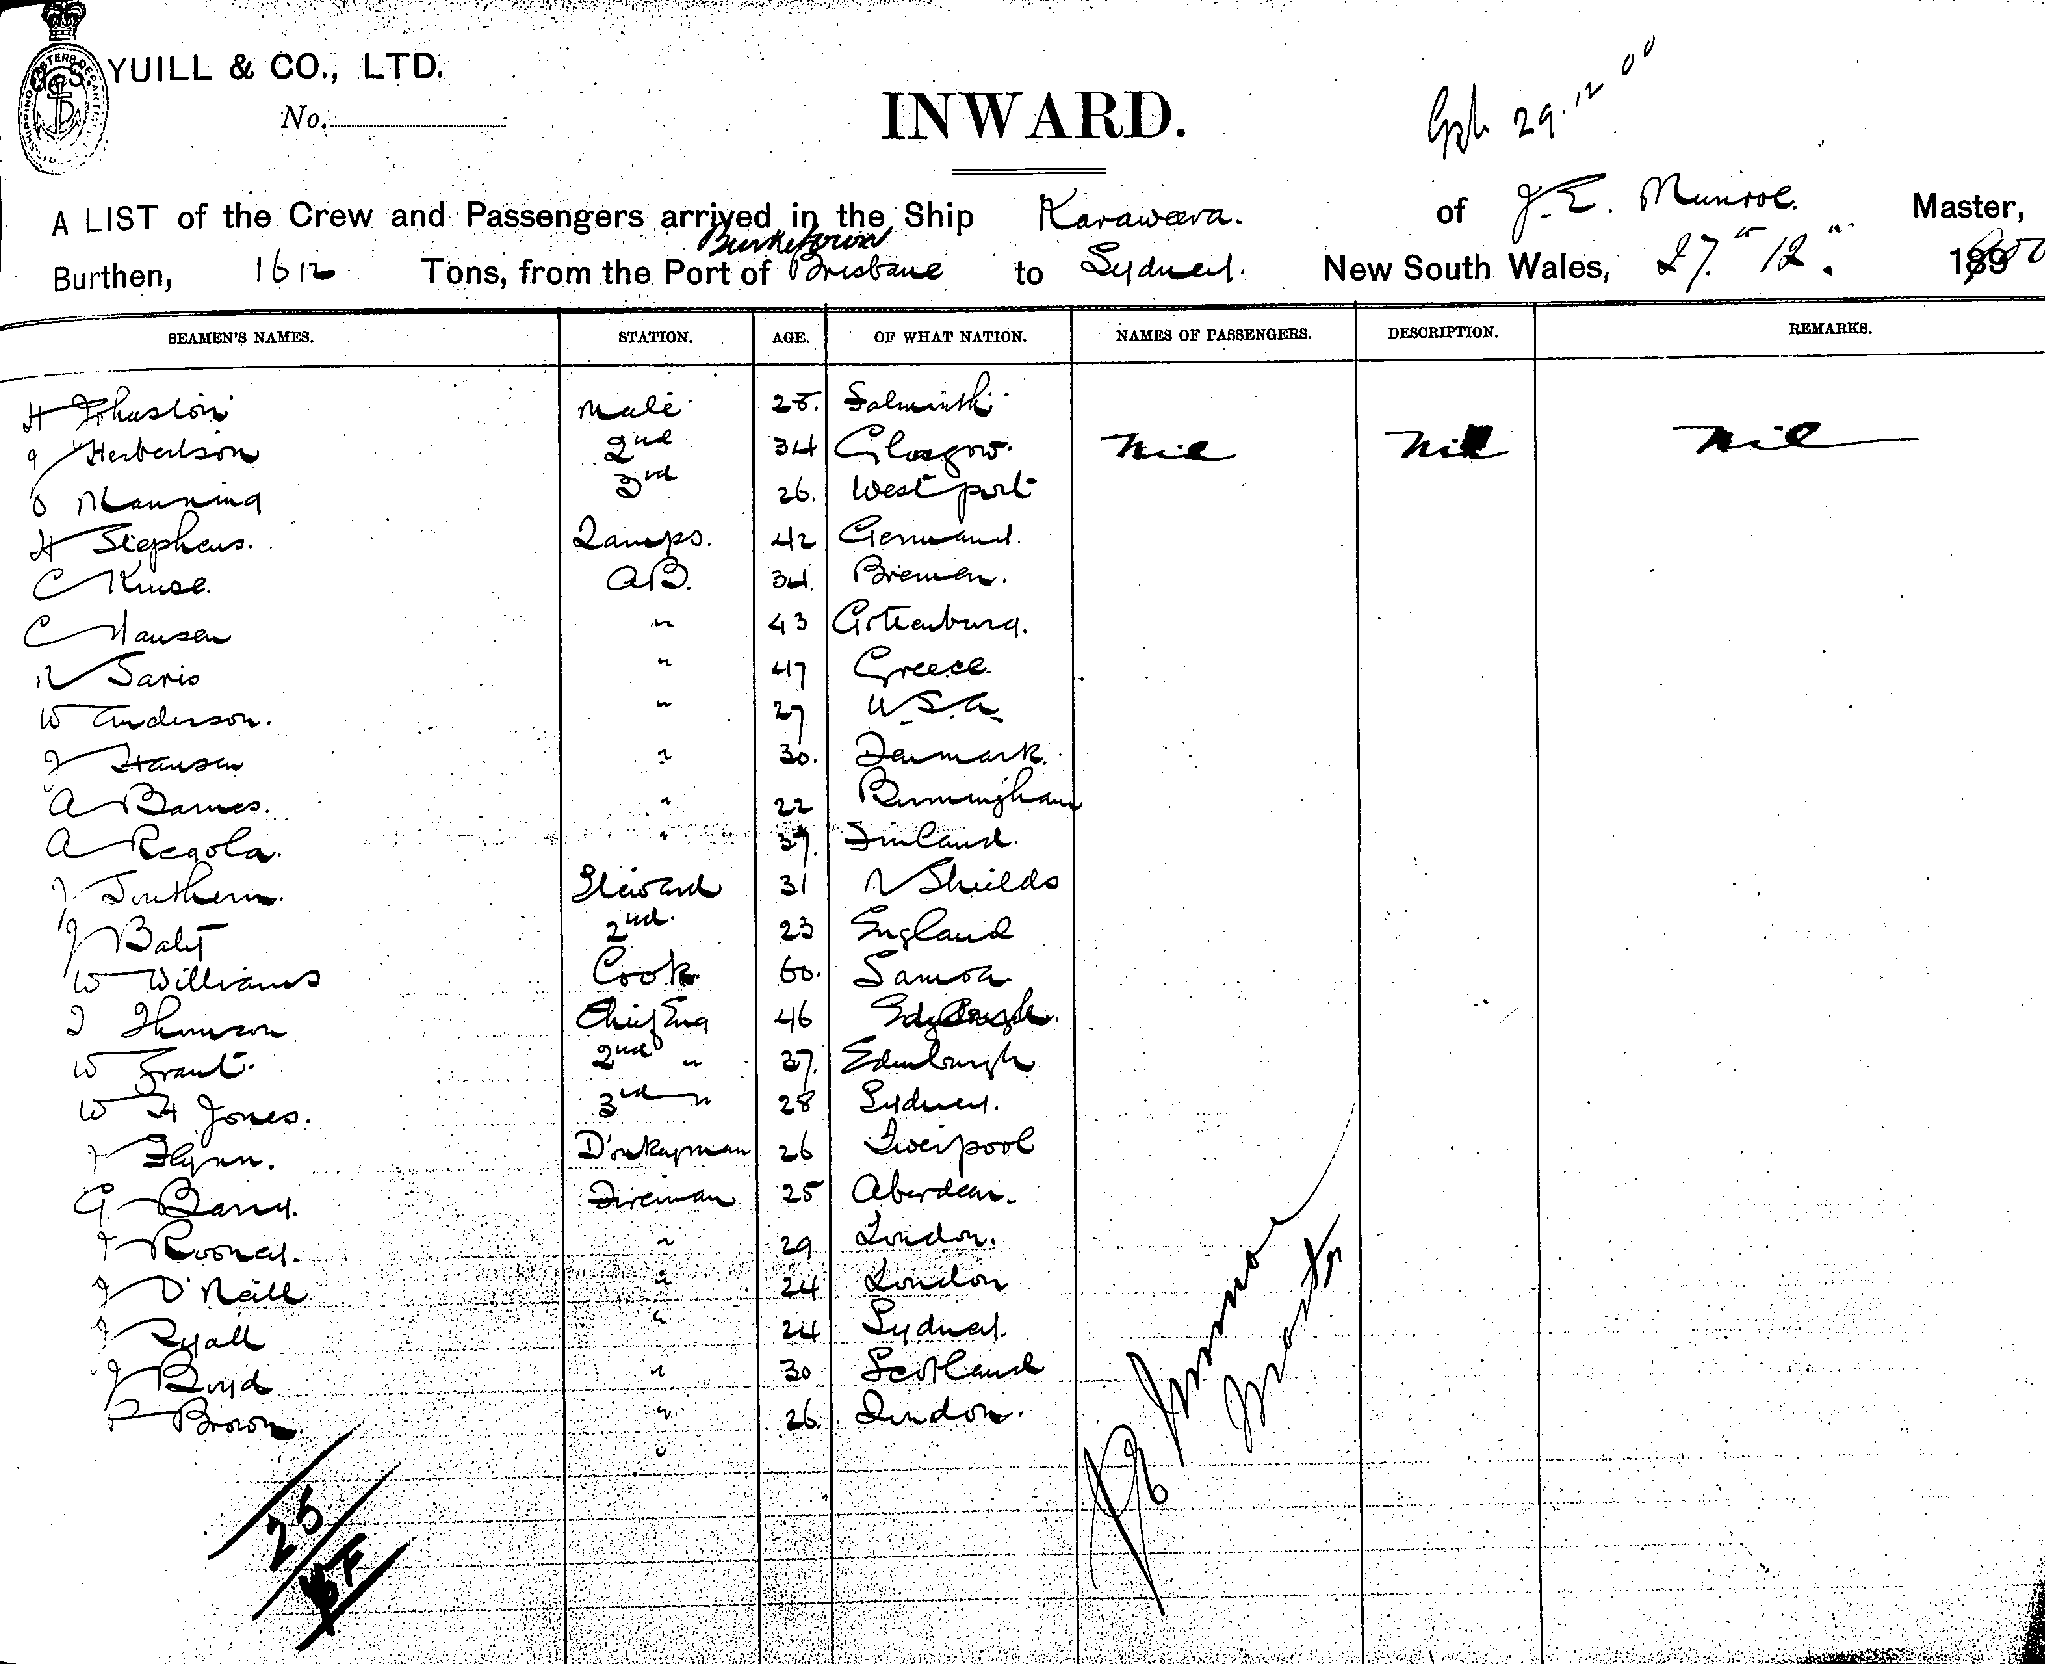 G. S. YUILL & CO., LTD.
No.
INWARD.
29.12.00
A LIST of the Crew and Passengers arrived in the Ship Karaweera. of J. E. Munroe. Master,
Burketown
Burthen, 1612 Tons, from the Port of Brisbane to Sydney. New South Wales, 27th 12. 1900
SEAMEN'S NAMES. STATION. AGE. OF WHAT NATION. NAMES OF PASSENGERS. DESCRIPTION. REMARKS.
H Johnston Mate 28. Falmouth
J Herbertson 2nd 34 Glasgow. Nil Nil Nil
Manning 3rd 26. Westport
H Stephens. Lamps. 42 Germany.
C Kruse. AB. 34. Bremen.
C Hansen " 43 Gotenburg.
N Saris " 47 Greece.
W Anderson. " 27 U.S.A.
J Hansen " 30. Denmark.
A Barnes. " 22 Birmingham
A Regola. " 37. Finland.
J Southern. Steward 31 N Shields
J Baly 2nd. 23 England
W Williams Cook 60. Samoa.
J Thomson Chief Eng 46
W Grant. 2nd " 37. Edinburgh
W H Jones. 3rd " 28 Sydney.
J Flynn. D'onkeyman 26 Liverpool
G Barry. Fireman 25 Aberdeen.
J Rooney. " 29 London.
J O'Neill " 24 London
J Ryall " 24 Sydney.
J Boyd " 30 Scotland
P Brown. " 26. London.
"
25
J E Munroe
Master